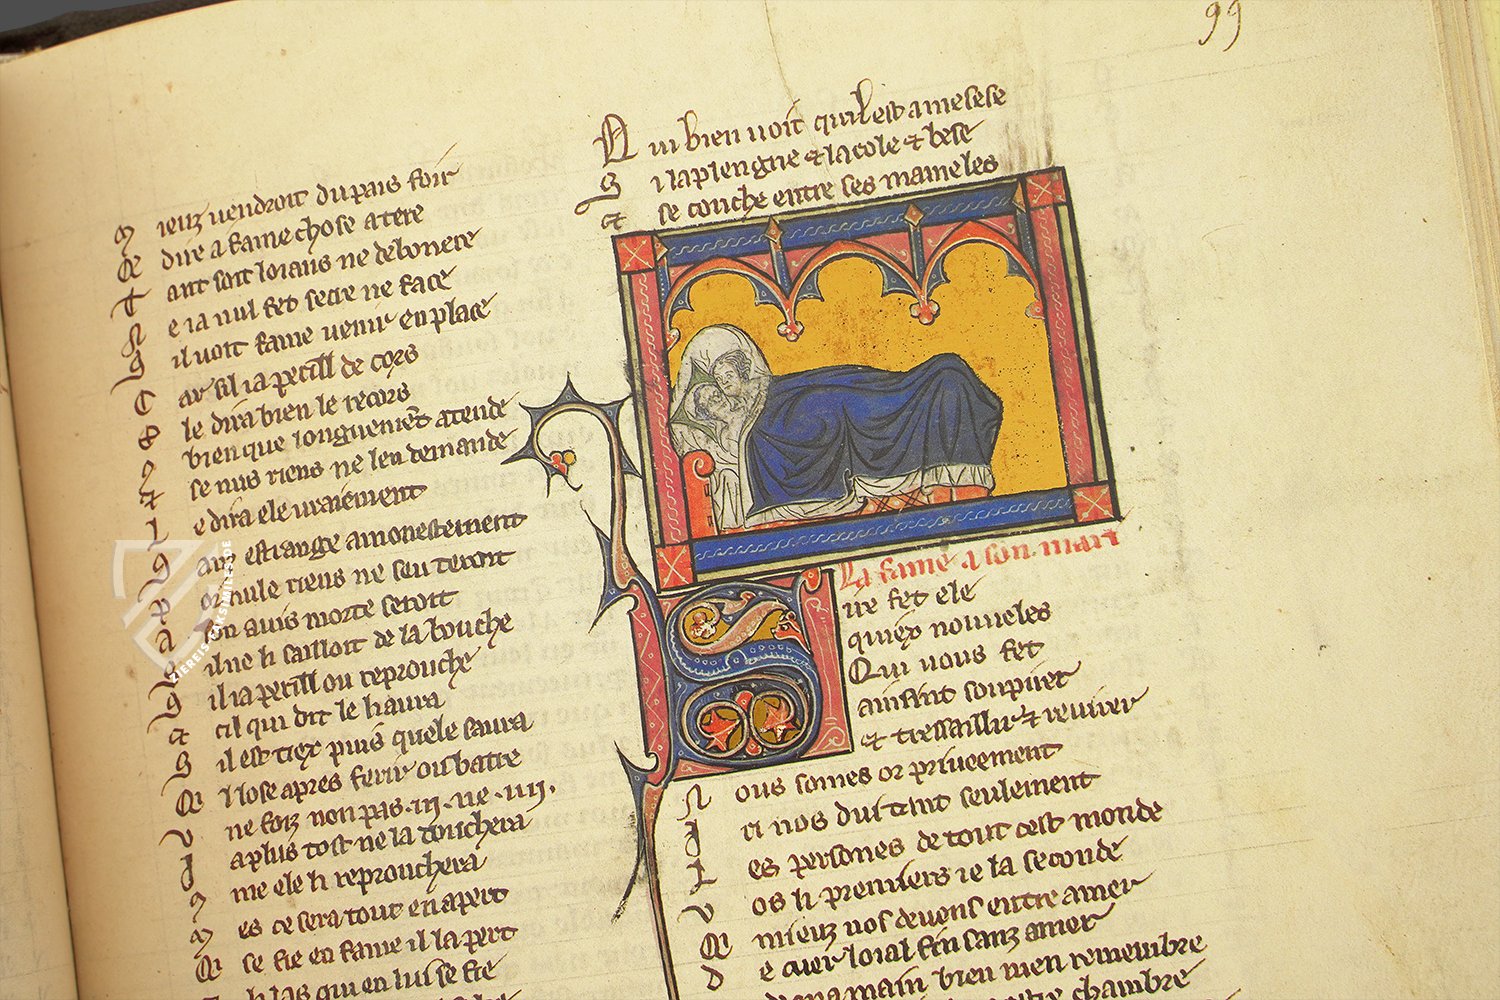 99
M ieuz vendroit du pais foir
Q dire a fame chose a tere
T ant soit loiaus ne debonere
N e ia nul fet secre ne face
S il voit fame venir en place
C ar sil ia perill de cors
E le dira bien le recors
J bien que longuement atende
Et se nus riens ne len demande
L e dira ele vraiement
S anz estrange amonestement
P or nule riens ne sen teroit
A son avis morte seroit
S il ne li sailloit de la bouche
S il ia perill ou reprouche
Et cil qui dit le li aura
S il est tiex puis quele saura
Q l lose apres ferir ou batre
V ne foiz non pas .iii. ne .iiii.
J a plus tost ne la touchera
C me ele li reprouchera
M es ce sera tout en apert
Q se fie en fame il la pert
li las qui en lui se fie
N ui bien voit quil est a mesese
S i la plengne et lacole et bese
Et se couche entre ses mameles
La fame a son mari
S ire fet ele
quiex nouveles
Qui vous fet
ainssint soupirer
et tressaillir et revirer
N ous somes or priveement
J ci nos dui tant seulement
L es persones de tout cest monde
V os li premiers ie la seconde
Q mieuz nos devens entre amer
D e cuer loial fin sanz amer
de ma main bien men remembre
chambre